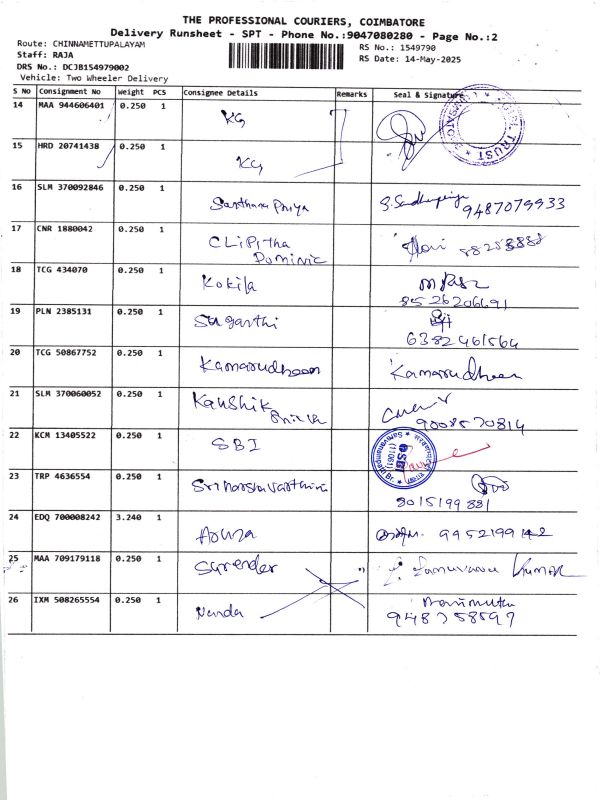 THE PROFESSIONAL COURIERS, COIMBATORE
Delivery Runsheet - SPT - Phone No.:9047080280 - Page No.:2
Route: CHINNAMETTUPALAYAM
RS No.: 1549790
Staff: RAJA
RS Date: 14-May-2025
DRS No.: DCJB154979002
Vehicle: Two Wheeler Delivery
S No Consignment No Weight PCS Consignee Details Remarks Seal & Signature
14 MAA 944606401 0.250 1 KG
TRUST
15 HRD 20741438 0.250 1 KG
16 SLM 370092846 0.250 1 Santhana Priya 9487079933
17 CNR 1880042 0.250 1 CLiPitha
Dominic
18 TCG 434070 0.250 1 Kokila
8526206691
19 PLN 2385131 0.250 1 Suganthi
6382461564
20 TCG 50867752 0.250 1 Kamarudheen Kamarudheen
21 SLM 370060052 0.250 1 Kaushik
9008570814
22 KCM 13405522 0.250 1 SBI
SBI
23 TRP 4636554 0.250 1
8015199881
24 EDQ 700008242 3.240 1 9952199142
25 MAA 709179118 0.250 1 Surender " Kumar
26 IXM 508265554 0.250 1 Nanda